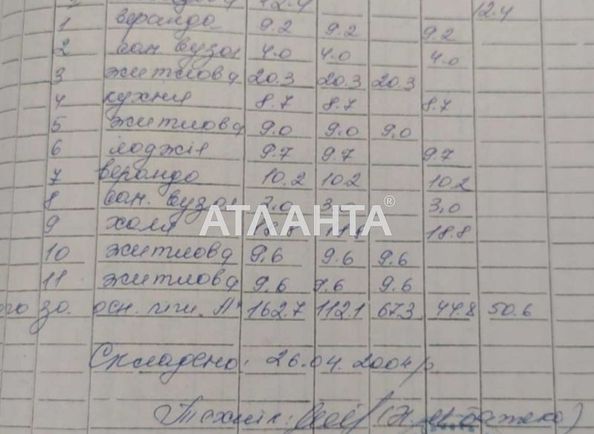 12.4 12.4
1 веранда 9.2 9.2 9.2
2 сан. вузол 4.0 4.0 4.0
3 житлова 20.3 20.3 20.3
4 кухня 8.7 8.7 8.7
5 житлова 9.0 9.0 9.0
6 лоджія 9.7 9.7 9.7
7 веранда 10.2 10.2 10.2
8 сан. вузол 3.0 3.0
АТЛАНТА®
9 хол 18.8
10 житлова 9.6 9.6 9.6
11 житлова 9.6 9.6 9.6
го зо. осн. 162.7 112.1 67.3 44.8 50.6
Складено: 26.04.2004р.
Технік: